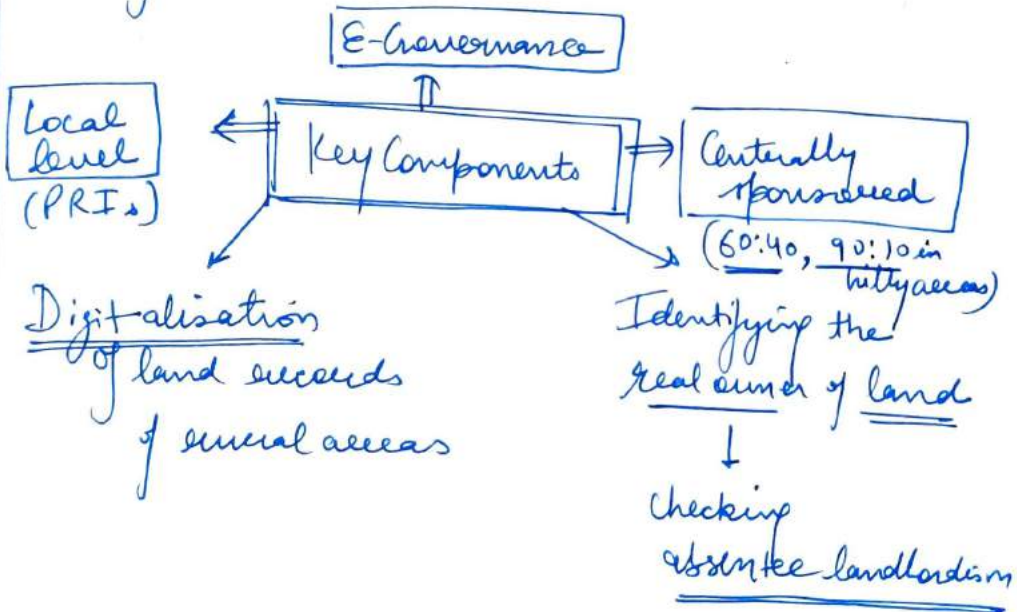 E-Governance
Local
level
(PRIs)
Key Components
Centrally
sponsored
(60:40, 90:10 in
hilly areas)
Digitalisation
of land records
of rural areas
Identifying the
real owner of land
Checking
absentee landlordism